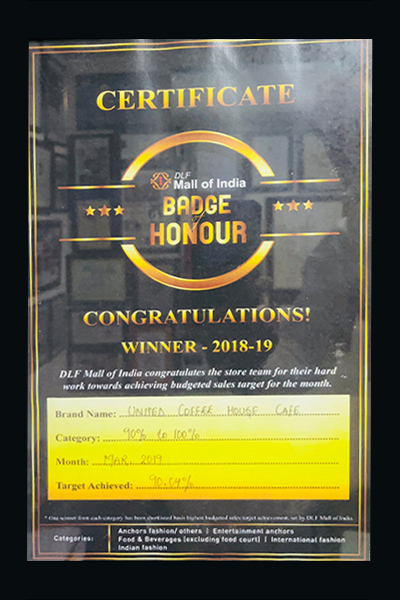 CERTIFICATE
DLF
Mall of India
BADGE
of
HONOUR
CONGRATULATIONS!
WINNER - 2018-19
DLF Mall of India congratulates the store team for their hard
work towards achieving budgeted sales target for the month.
Brand Name: UNITED COFFEE HOUSE CAFE
Category: 90% to 100%
Month: MAR, 2019
Target Achieved: 90.04%
* One winner from each category has been shortlisted basis highest budgeted sales target achievement, set by DLF Mall of India.
Categories: Anchors fashion/ others | Entertainment anchors
Food & Beverages [excluding food court] | International fashion
Indian fashion